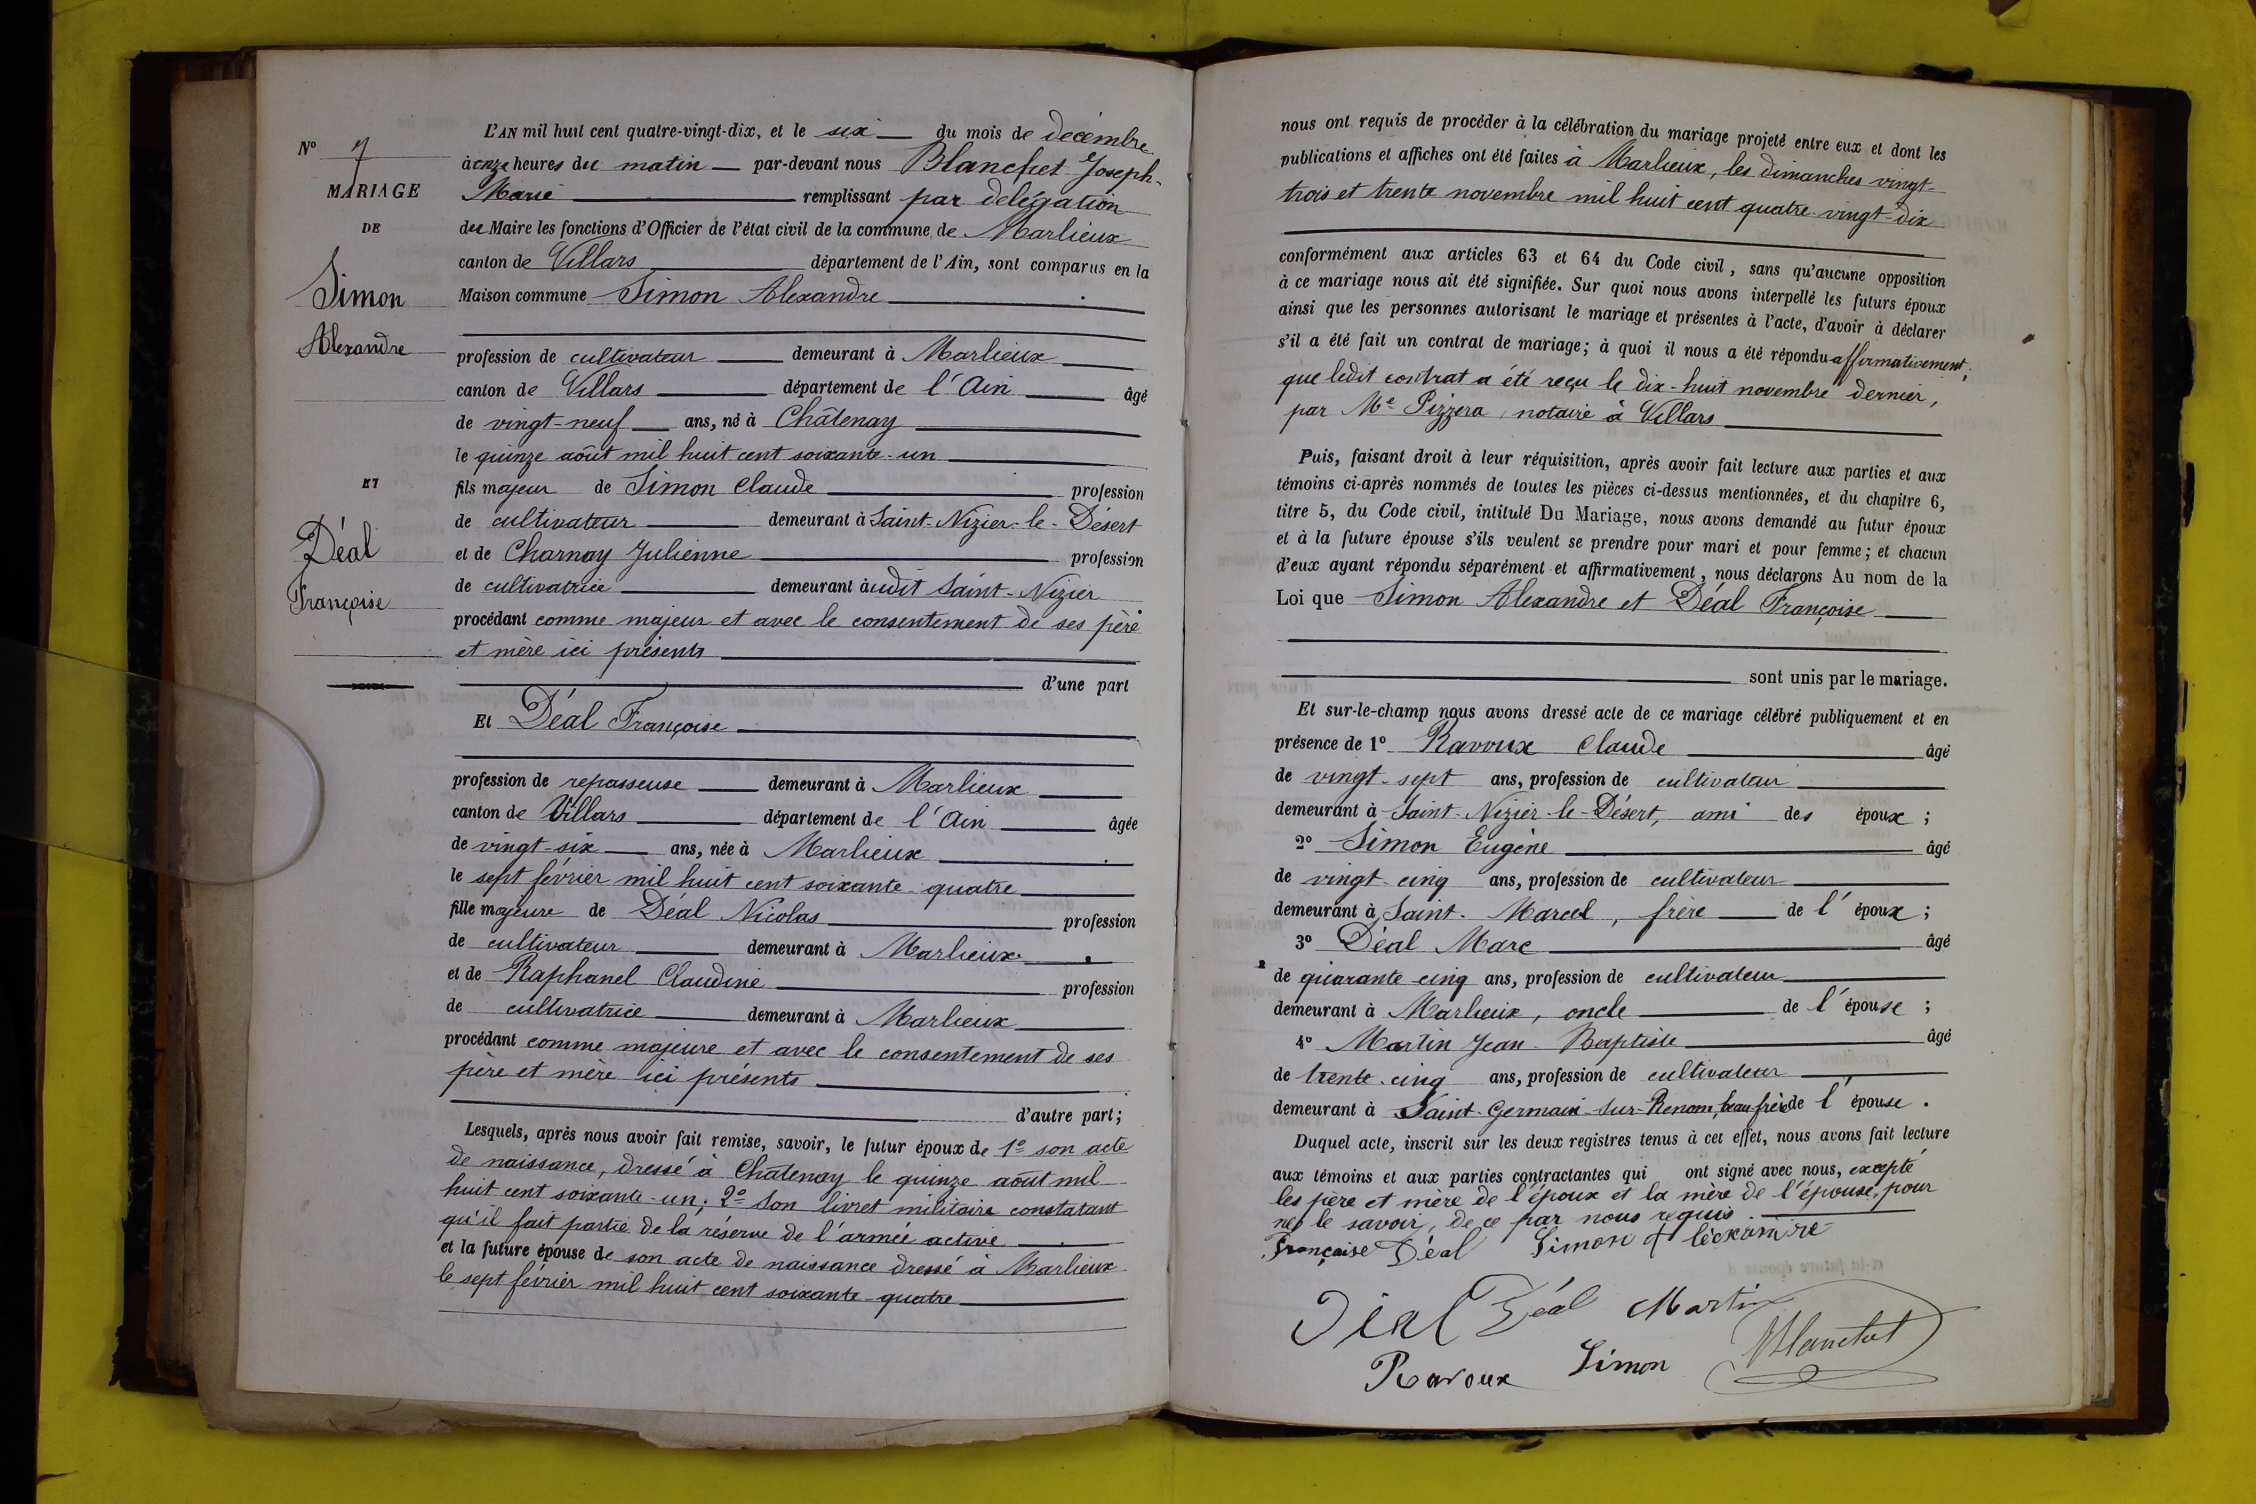 N° 7
MARIAGE
DE
Simon
Alexandre
ET
Déal
Françoise
L'AN mil huit cent quatre-vingt-dix, et le six du mois de décembre
à onze heures du matin par-devant nous Blanchet Joseph-
Marie remplissant par délégation
du Maire les fonctions d'Officier de l'état civil de la commune de Marlieux
canton de Villars département de l'Ain, sont comparus en la
Maison commune Simon Alexandre
profession de cultivateur demeurant à Marlieux
canton de Villars département de l'Ain âgé
de vingt-neuf ans, né à Châtenay
le quinze août mil huit cent soixante-un
fils majeur de Simon Claude profession
de cultivateur demeurant à Saint-Nizier-le-Désert
et de Charnay Julienne profession
de cultivatrice demeurant àudit Saint-Nizier
procédant comme majeur et avec le consentement de ses père
et mère ici présents
d'une part
Et Déal Françoise
profession de repasseuse demeurant à Marlieux
canton de Villars département de l'Ain âgée
de vingt-six ans, née à Marlieux
le sept février mil huit cent soixante-quatre
fille majeure de Déal Nicolas profession
de cultivateur demeurant à Marlieux
et de Raphanel Claudine profession
de cultivatrice demeurant à Marlieux
procédant comme majeure et avec le consentement de ses
père et mère ici présents
d'autre part;
Lesquels, après nous avoir fait remise, savoir, le futur époux de 1° son acte
de naissance, dressé à Châtenay le quinze août mil
huit cent soixante-un; 2° Son livret militaire constatant
qu'il fait partie de la réserve de l'armée active
et la future épouse de son acte de naissance dressé à Marlieux
le sept février mil huit cent soixante-quatre
nous ont requis de procéder à la célébration du mariage projeté entre eux et dont les
publications et affiches ont été faites à Marlieux, les dimanches vingt-
trois et trente novembre mil huit cent quatre-vingt-dix
conformément aux articles 63 et 64 du Code civil, sans qu'aucune opposition
à ce mariage nous ait été signifiée. Sur quoi nous avons interpellé les futurs époux
ainsi que les personnes autorisant le mariage et présentes à l'acte, d'avoir à déclarer
s'il a été fait un contrat de mariage; à quoi il nous a été répondu affirmativement;
que ledit contrat a été reçu le dix-huit novembre dernier,
par Me Pizzera, notaire à Villars
Puis, faisant droit à leur réquisition, après avoir fait lecture aux parties et aux
témoins ci-après nommés de toutes les pièces ci-dessus mentionnées, et du chapitre 6,
titre 5, du Code civil, intitulé Du Mariage, nous avons demandé au futur époux
et à la future épouse s'ils veulent se prendre pour mari et pour femme; et chacun
d'eux ayant répondu séparément et affirmativement, nous déclarons Au nom de la
Loi que Simon Alexandre et Déal Françoise
sont unis par le mariage.
Et sur-le-champ nous avons dressé acte de ce mariage célébré publiquement et en
présence de 1° Ravoux Claude âgé
de vingt-sept ans, profession de cultivateur
demeurant à Saint-Nizier-le-Désert, ami des époux;
2° Simon Eugène âgé
de vingt-cinq ans, profession de cultivateur
demeurant à Saint-Marcel, frère de l'époux;
3° Déal Marc âgé
de quarante-cinq ans, profession de cultivateur
demeurant à Marlieux, oncle de l'épouse;
4° Martin Jean-Baptiste âgé
de trente-cinq ans, profession de cultivateur
demeurant à Saint-Germain-sur-Renom, beau-frère de l'épouse.
Duquel acte, inscrit sur les deux registres tenus à cet effet, nous avons fait lecture
aux témoins et aux parties contractantes qui ont signé avec nous, excepté
les père et mère de l'époux et la mère de l'épouse, pour
ne le savoir, de ce par nous requis.
Françoise Déal Simon
Déal Déal Martin
Ravoux Simon Blanchet